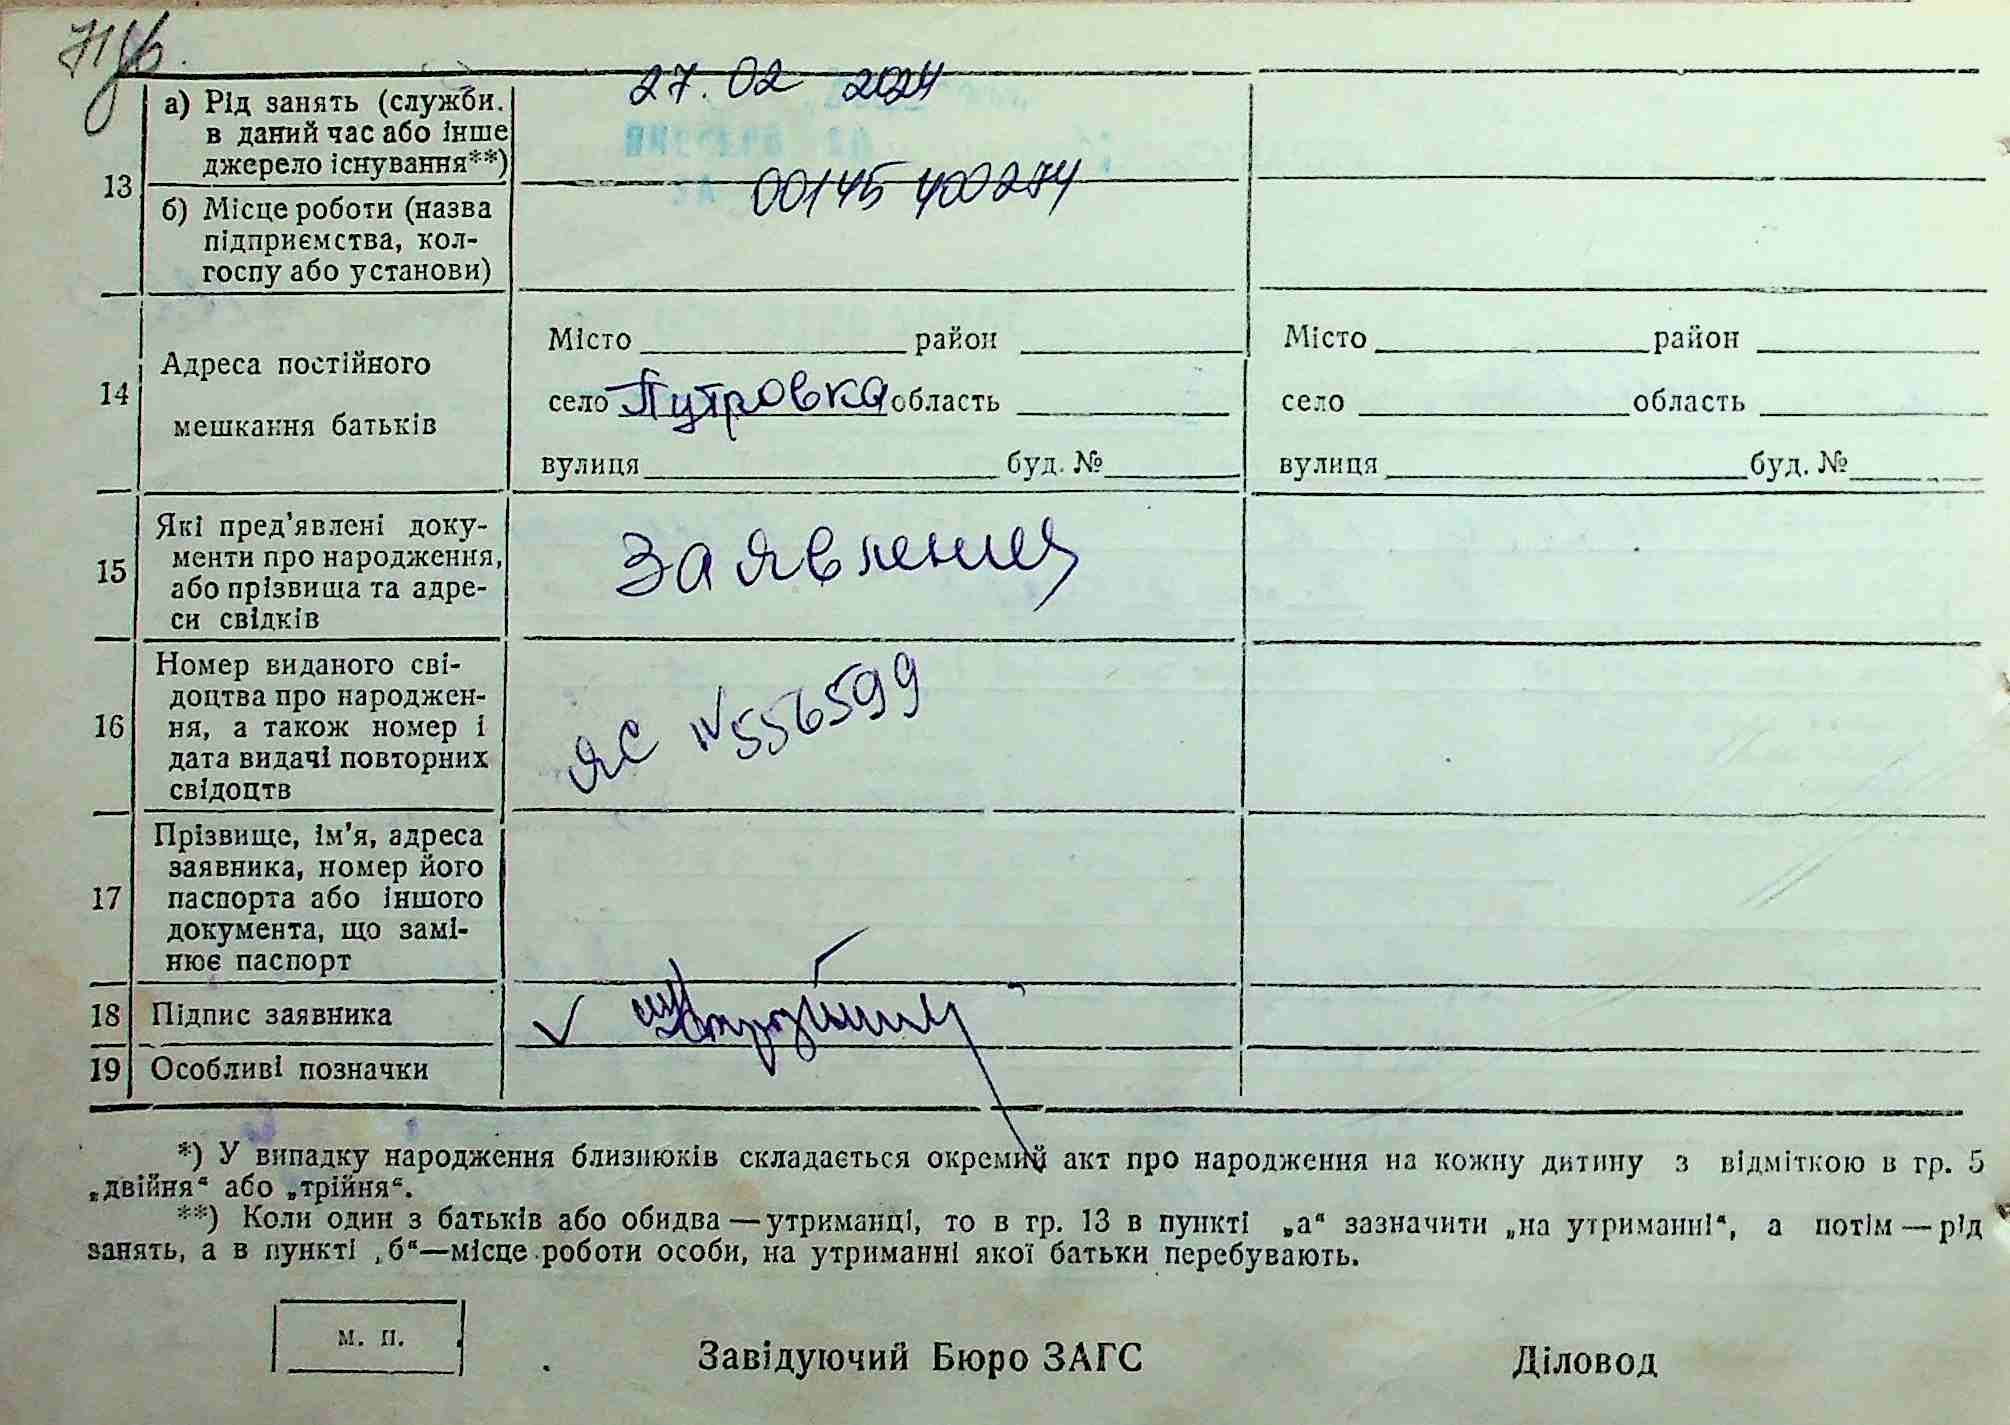 27. 02 2024
а) Рід занять (служби.
в даний час або інше
джерело існування**)
13
00145 400274
б) Місце роботи (назва
підприємства, кол-
госпу або установи)
14
Адреса постійного
мешкання батьків
Місто район
село Путровка область
вулиця буд. №
Місто район
село область
вулиця буд. №
15
Які пред’явлені доку-
менти про народження,
або прізвища та адре-
си свідків
Заявление
16
Номер виданого сві-
доцтва про народжен-
ня, а також номер і
дата видачі повторних
свідоцтв
ЯС №556599
17
Прізвище, ім’я, адреса
заявника, номер його
паспорта або іншого
документа, що замі-
нює паспорт
18 Підпис заявника
19 Особливі позначки
*) У випадку народження близнюків складається окремий акт про народження на кожну дитину з відміткою в гр. 5
„двійня“ або „трійня“.
**) Коли один з батьків або обидва — утриманці, то в гр. 13 в пункті „а“ зазначити „на утриманні“, а потім — рід
занять, а в пункті „б“—місце роботи особи, на утриманні якої батьки перебувають.
м. п.
Завідуючий Бюро ЗАГС
Діловод